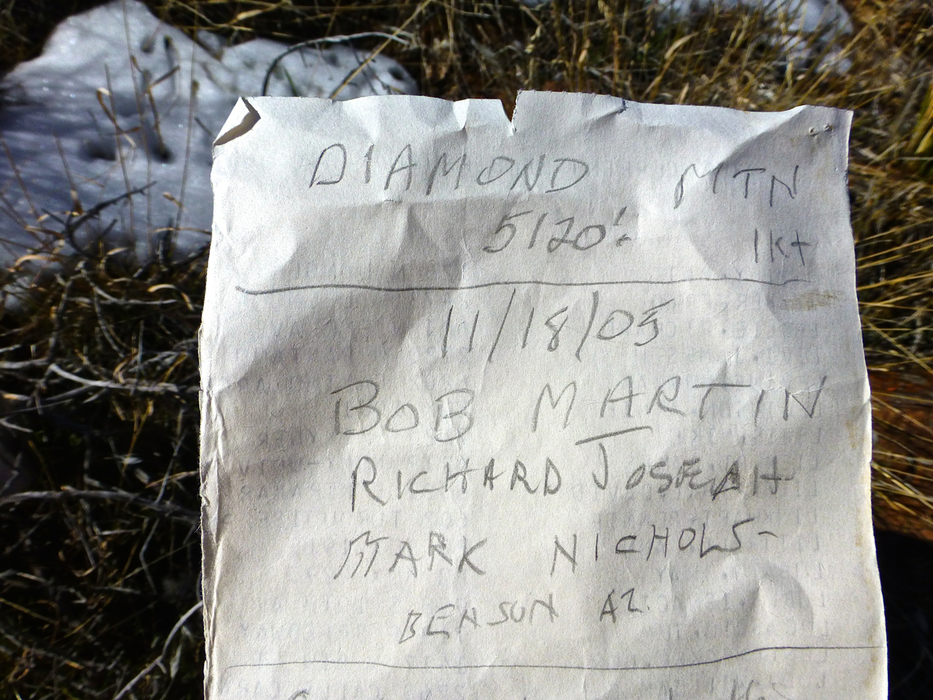 DIAMOND MTN
5120'± 1kt
11/18/05
BOB MARTIN
RICHARD JOSEPH
MARK NICHOLS-
BENSON AZ.